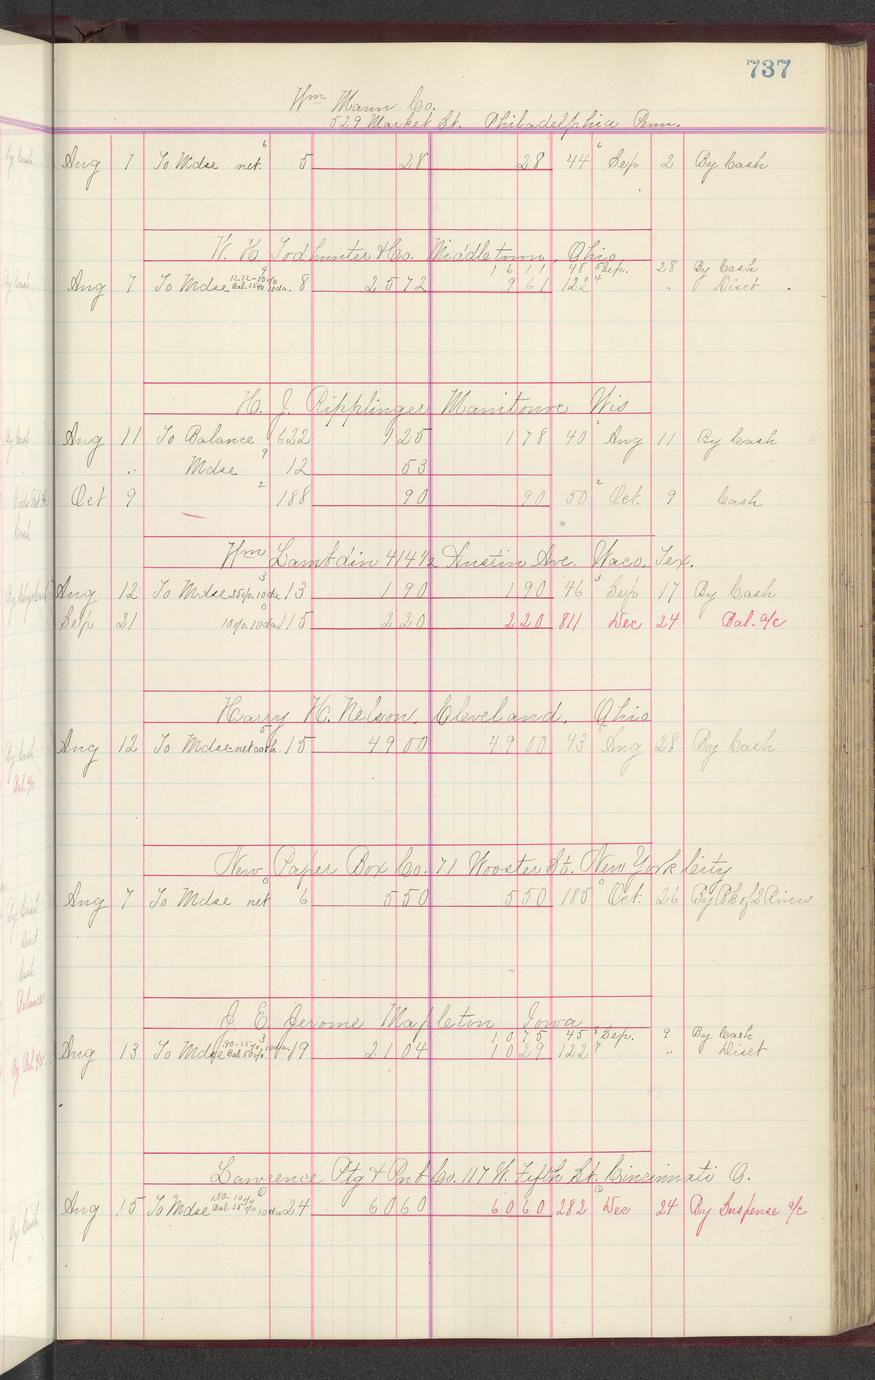 737
Wm Mann Co.
529 Market St. Philadelphia Penn.
Aug 7 To Mdse net. 6 5 28 28 44 6 Sep 2 By Cash
W. H. Todhunter & Co. Middletown, Ohio
1611 48 5 Sep. 28 By Cash
Aug 7 To Mdse 9 8 2572 961 122 4 " Disct
H. J. Ripplinger Manitowoc Wis
Aug 11 To Balance 622 125 178 40 2 Aug 11 By Cash
" Mdse 9 12 53
Oct 9 2 188 90 90 50 2 Oct. 9 Cash
Wm Lambdin 414 1/2 Austin Ave. Waco, Tex.
Aug 12 To Mdse 25%. 10 da. 3 13 190 190 46 3 Sep 17 By Cash
Sep 21 10%. 10 da. 0 115 220 220 811 Dec 24 Bal. a/c
Harry H. Nelson, Cleveland, Ohio
Aug 12 To Mdse net cash. 5 15 4900 4900 43 5 Aug 28 By Cash
New Paper Box Co. 71 Wooster St. New York City
Aug 7 To Mdse net 0 6 550 550 185 0 Oct. 26 By Bk of 2 Rivers
J. E. Jerome Mapleton Iowa
1075 45 8 Sep. 9 By Cash
Aug 13 To Mdse 3 19 2104 1029 122 7 " Disct
Lawrence Ptg & Pub Co. 117 W. Fifth St. Cincinnati O.
Aug 15 To Mdse 1.50-10% Bal. 25% 10 da 0 24 6060 6060 282 0 Dec 24 By Suspense a/c